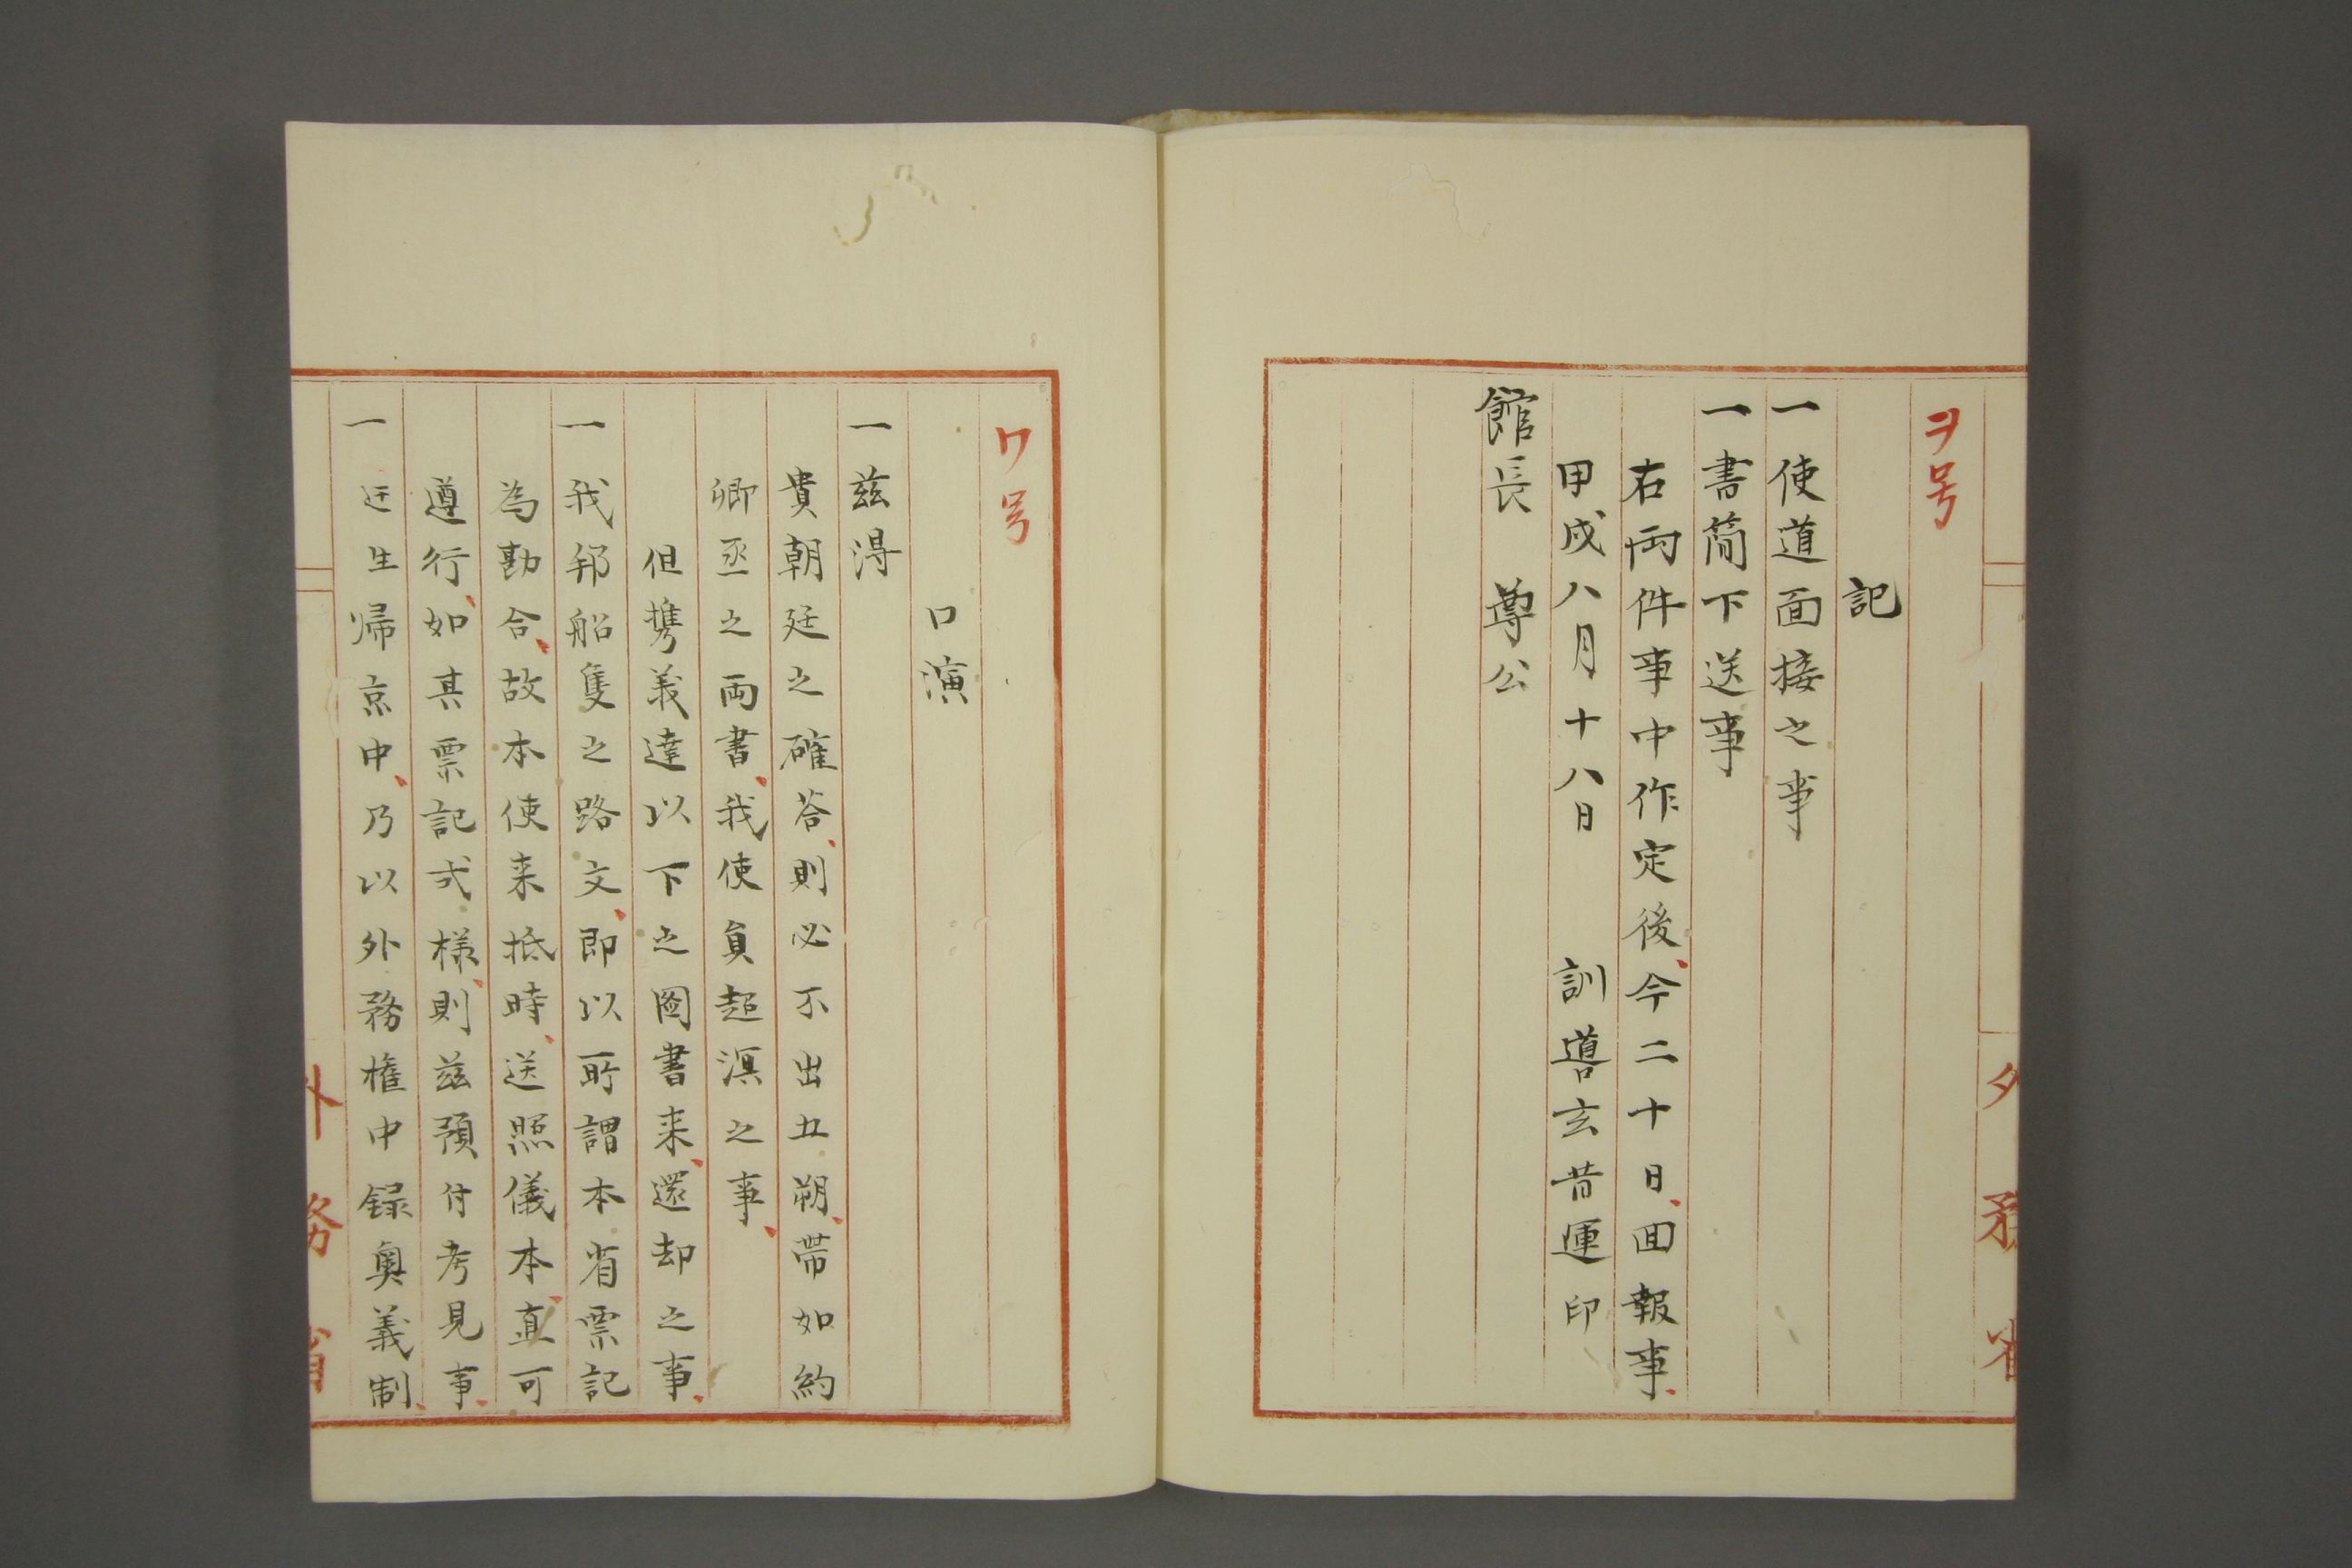 ヲ号
記
一使道面接之事
一書簡下送事
右両件事中作定後、今二十日、回報事、
甲戌八月十八日 訓導玄昔運印
館長 尊公
外務省
ワ号
口演
一茲得
貴朝廷之確荅、則必不出五朔、帯如約
卿丞之両書、我使員超溟之事、
但携義達以下之図書来、還却之事、
一我邦船隻之路文、即以所謂本省票記
為勘合、故本使来抵時、送照儀本、直可
遵行、如其票記式様、則茲預付考見事、
一迂生帰京中、乃以外務権中録奥義制、
外務省